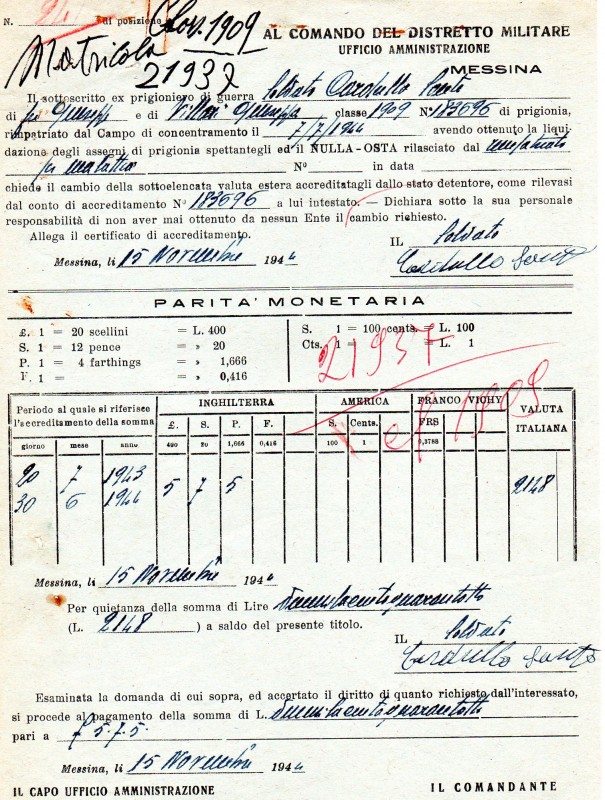 N. di posizione Clas. 1909
Matricola
21937
AL COMANDO DEL DISTRETTO MILITARE
UFFICIO AMMINISTRAZIONE
MESSINA
Il sottoscritto ex prigioniero di guerra Soldato Cardullo Santo
di fu Giuseppe e di Villari Giuseppa classe 1909 N° 183595 di prigionia,
rimpatriato dal Campo di concentramento il 7/7/1944 avendo ottenuto la liqui-
dazione degli assegni di prigionia spettantegli ed il NULLA-OSTA rilasciato dal
per malattia N° in data
chiede il cambio della sottoelencata valuta estera accreditatagli dallo stato detentore, come rilevasi
dal conto di accreditamento N° 183595 a lui intestato. — Dichiara sotto la sua personale
responsabilità di non aver mai ottenuto da nessun Ente il cambio richiesto.
Allega il certificato di accreditamento.
IL Soldato
Messina, li 15 Novembre 1944
Cardullo Santo
PARITA' MONETARIA
£. 1 = 20 scellini = L. 400
S. 1 = 12 pence = » 20
P. 1 = 4 farthings = » 1,666
F. 1 = = » 0,416
S. 1 = 100 cents. = L. 100
Cts. 1 = = L. 1
21937
cl 1909
Periodo al quale si riferisce l'accreditamento della somma
INGHILTERRA AMERICA FRANCO VICHY VALUTA ITALIANA
giorno mese anno £. S. P. F. S. Cents. FRS
400 20 1,666 0,416 100 1 0,3788
20 7 1943
30 6 1944 5 7 5 2148
Messina, li 15 Novembre 1944
Per quietanza della somma di Lire duemilacentoquarantotto
(L. 2148 ) a saldo del presente titolo.
IL Soldato
Cardullo Santo
Esaminata la domanda di cui sopra, ed accertato il diritto di quanto richiesto dall'interessato,
si procede al pagamento della somma di L. duemilacentoquarantotto
pari a £ 5.7.5.
Messina, li 15 Novembre 1944
IL CAPO UFFICIO AMMINISTRAZIONE IL COMANDANTE